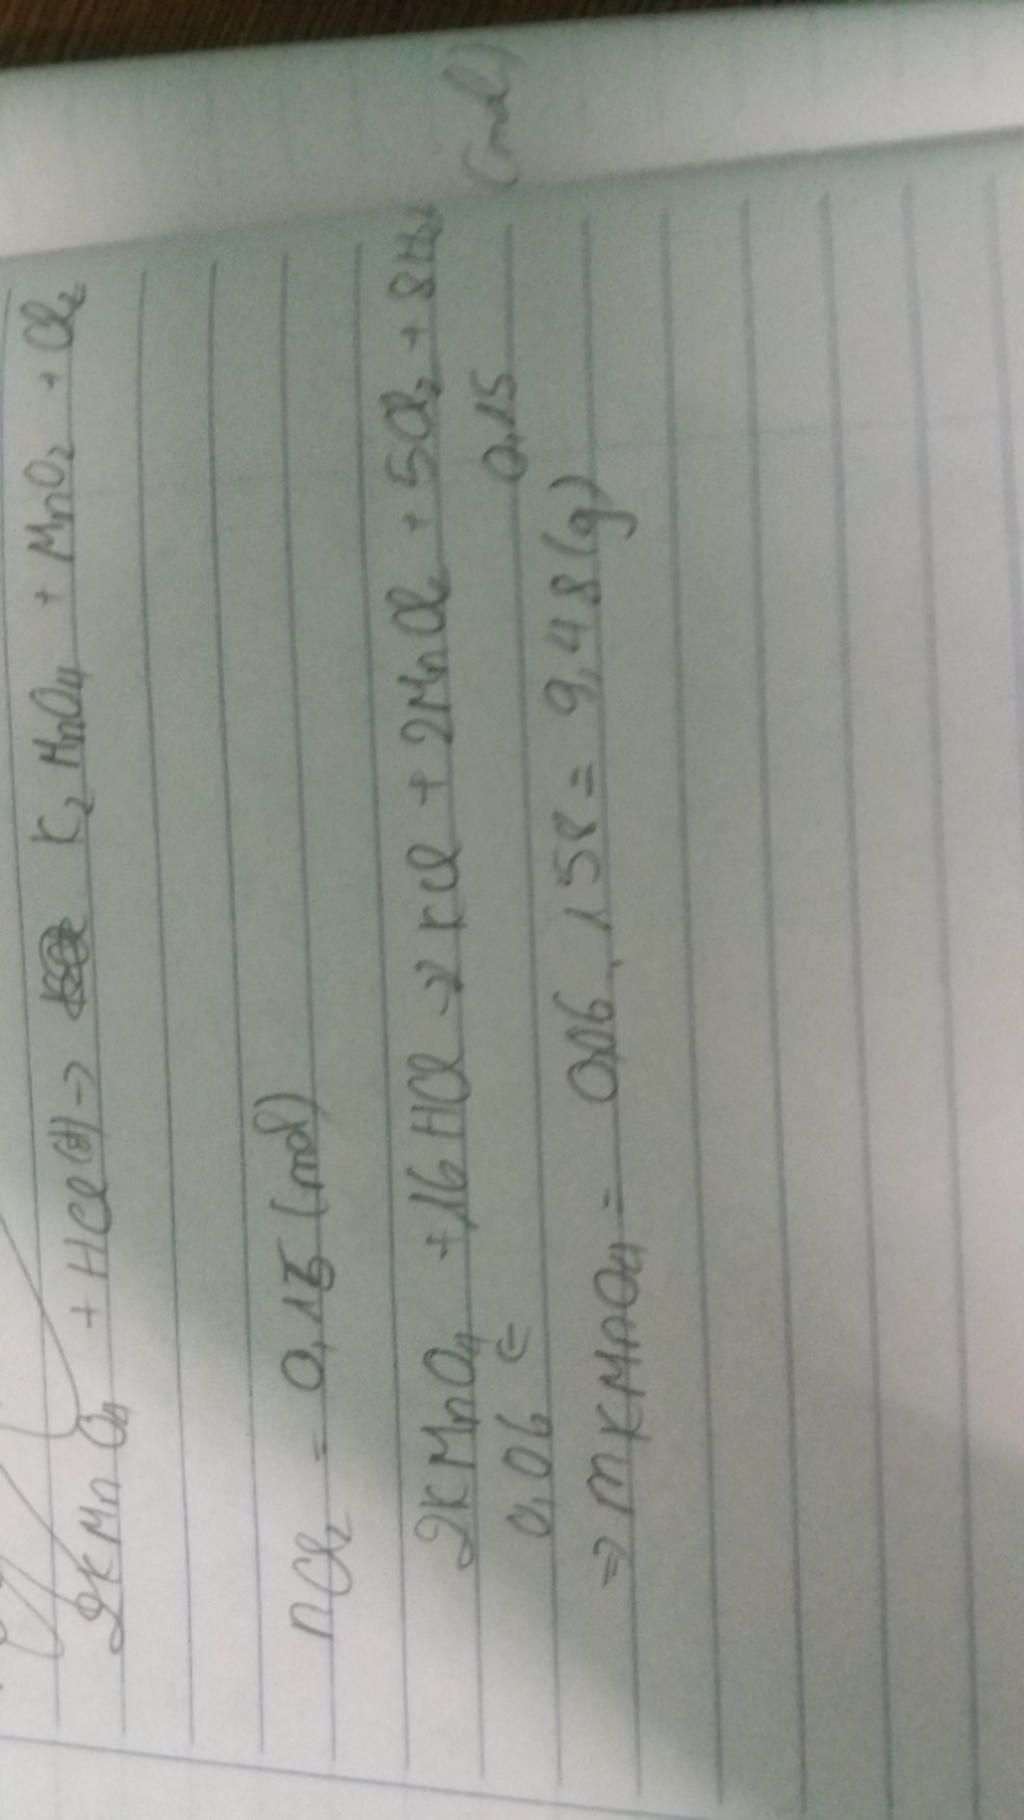 2KMnO₄ + HCl(đ) → K₂MnO₄ + MnO₂ + Cl₂
nCl₂ = 0,15 (mol)
2KMnO₄ + 16HCl → 2KCl + 2MnCl₂ + 5Cl₂ + 8H₂
0,06 ← 0,15 (mol)
⇒ mKMnO₄ = 0,06 . 158 = 9,48 (g)